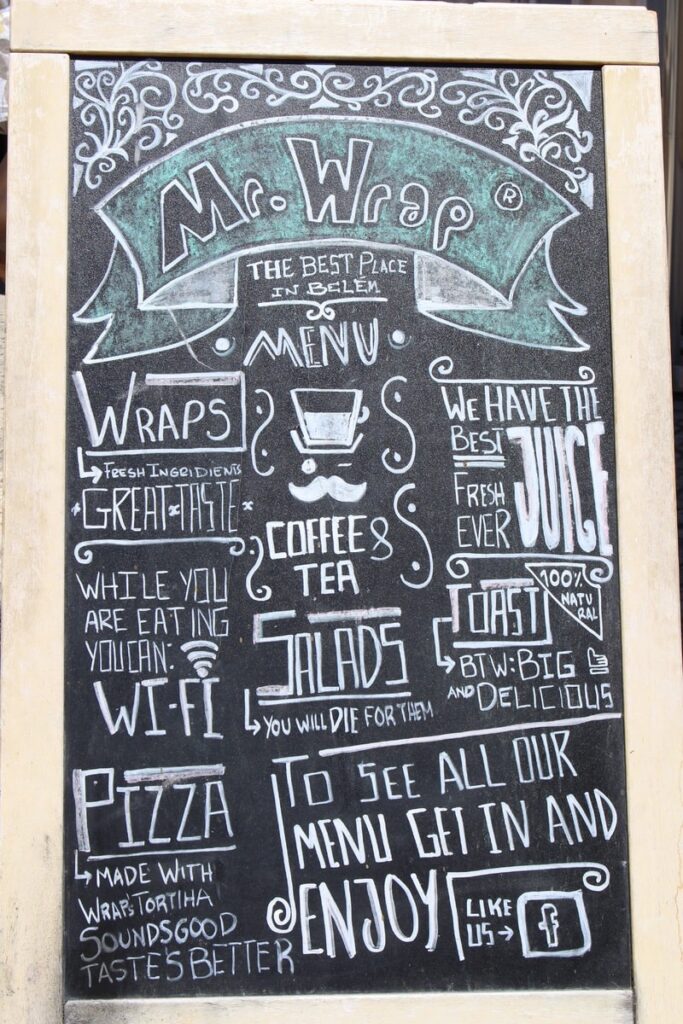 Mr. Wrap ®
THE BEST PLACE
IN BELÉM
MENU
WRAPS
FRESH INGRIDIENTS
GREAT TASTE
WHILE YOU
ARE EATING
YOU CAN:
WI-FI
PIZZA
MADE WITH
WRAP'S TORTIHA
SOUNDS GOOD
TASTE'S BETTER
COFFEE &
TEA
SALADS
YOU WILL DIE FOR THEM
WE HAVE THE
BEST
FRESH
EVER
JUICE
100%
NATU
RAL
TOAST
BTW: BIG
AND DELICIOUS
TO SEE ALL OUR
MENU GET IN AND
ENJOY
LIKE
US → f